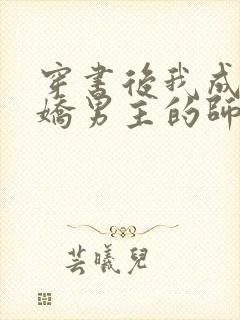 穿書後我成
嬌男主的師
芸曦兒